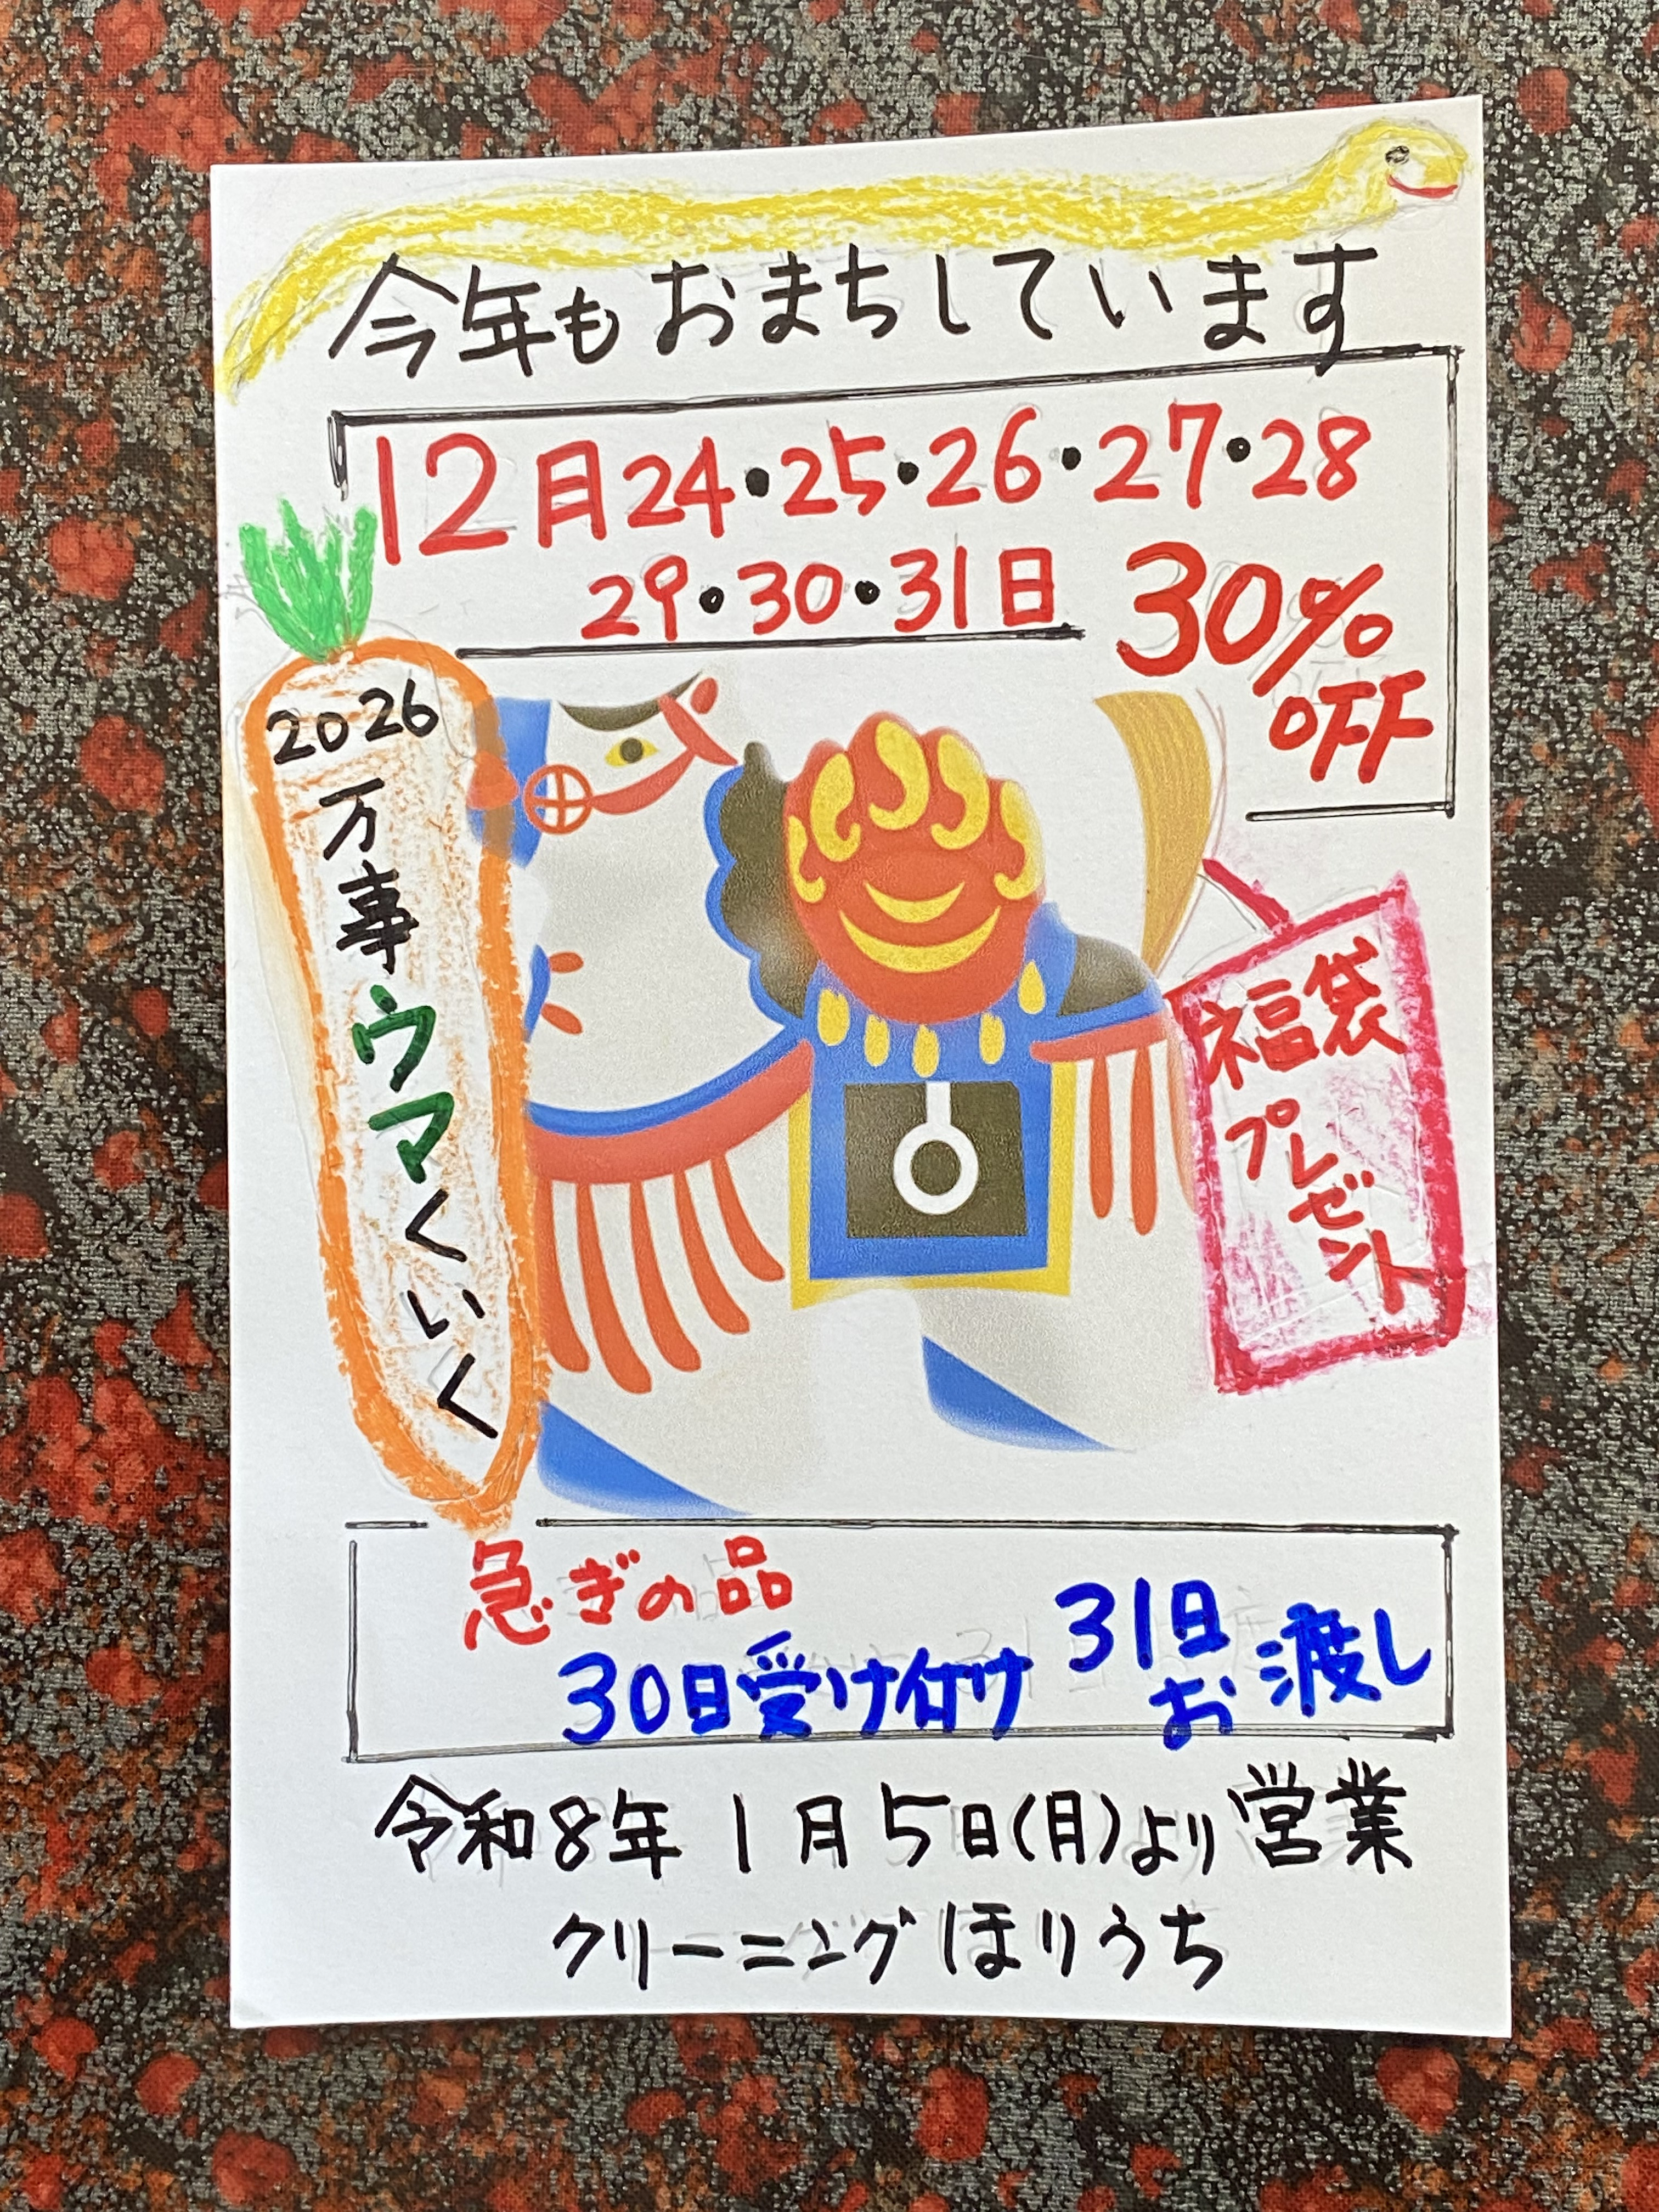 今年もおまちしています
12月24・25・26・27・28
29・30・31日
30%
OFF
2026
万事ウマくいく
福袋
プレゼント
急ぎの品
30日受け付け 31日
お渡し
令和8年 1月5日(月)より営業
クリーニングほりうち